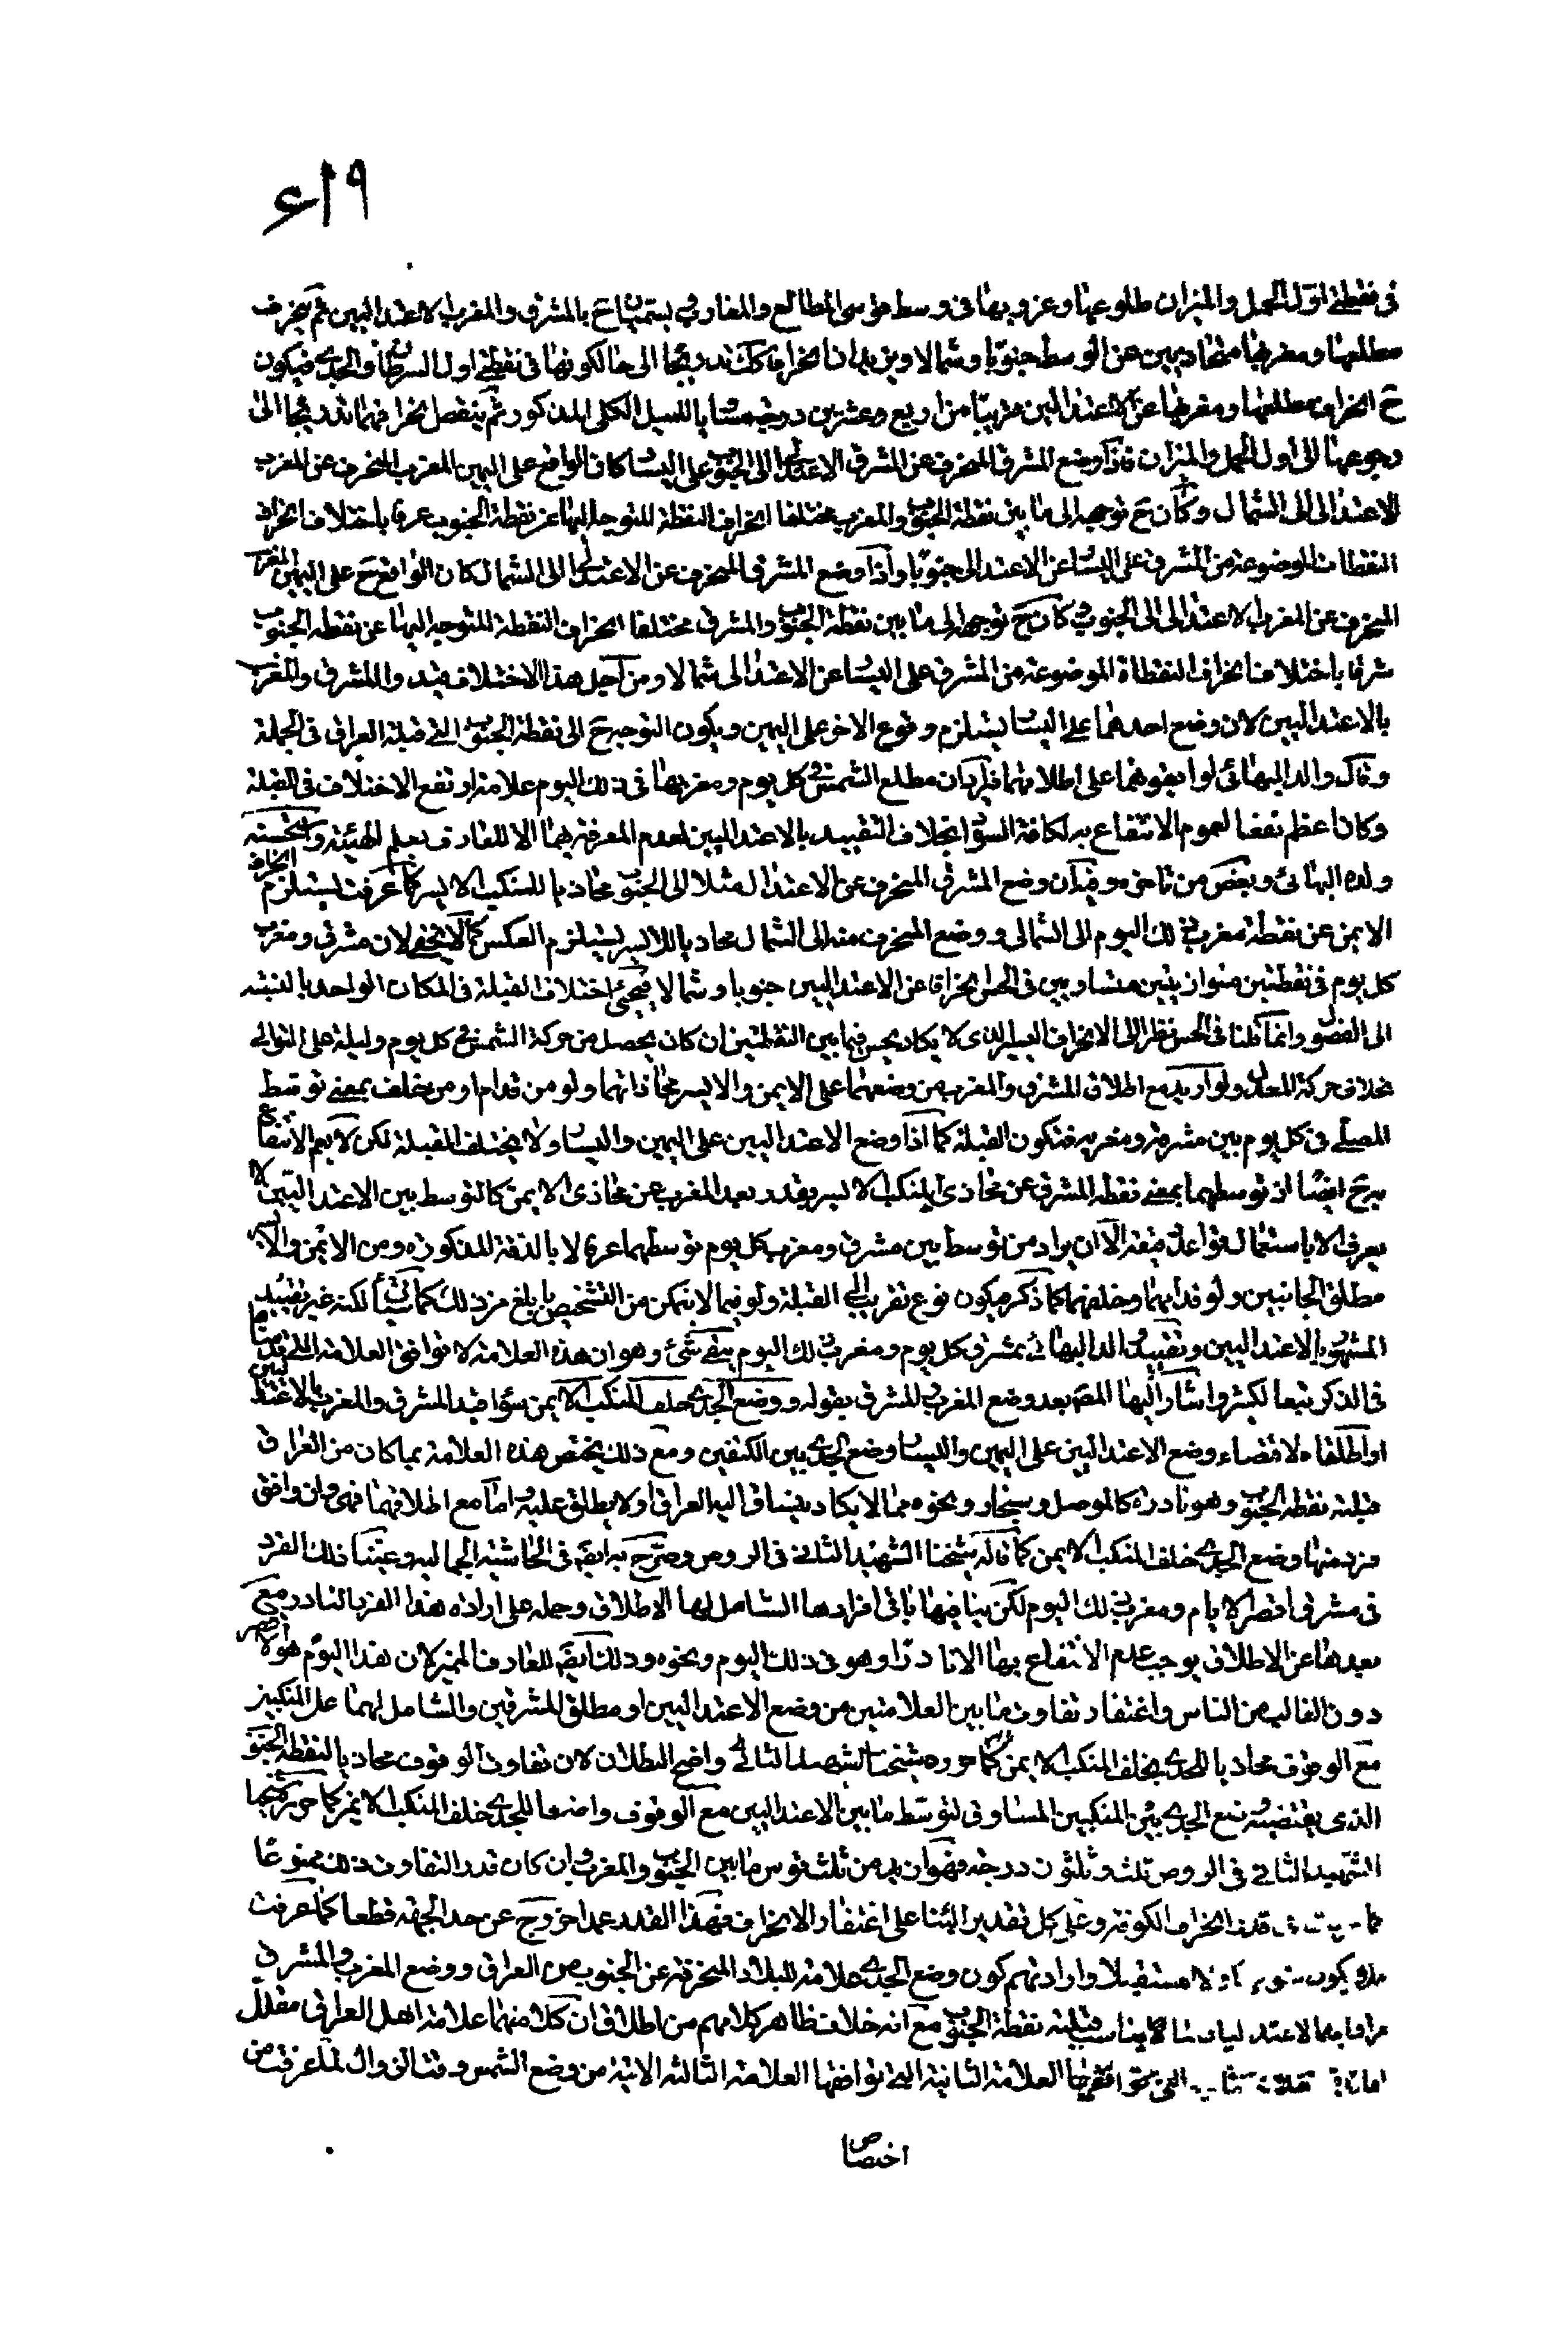 ٤١٩
فى نقطتى اول الحمل والميزان طلوعها وغروبها فى وسط قوسى المطالع والمغارب يسميان ح بالمشرق والمغرب الاعتداليين ثم ينحرف
مطلعها ومغربها متحاديين عن الوسط جنوبا وشمالا ويزيدان انحرافا كك تدريجا الى حال كونها فى نقطتى اول السرطان والجدى فيكون
ح انحراف مطلعها ومغربها عن الاعتداليين قريبا من اربع وعشرين درجة مساويا للميل الكلى المذكور ثم ينقص انحرافهما تدريجا الى
رجوعها الى اول الحمل والميزان فاذا وضع المشرق المنحرف عن المشرق الاعتدالى الى الجنوب على اليسار كان الواقع على اليمين المغرب المنحرف عن المغرب
الاعتدالى الى الشمال وكان ح توجهه الى ما بين نقطة الجنوب والمغرب مختلفا انحراف النقطة المتوجه اليها عن نقطة الجنوب غربا باختلاف انحراف
النقطة الموضوعة من المشرق على اليسار عن الاعتدالى جنوبا واذا وضع المشرق المنحرف عن الاعتدالى الى الشمال كان الواقع ح على اليمين المغرب
المنحرف عن المغرب الاعتدالى الى الجنوب كان ح توجهه الى ما بين نقطة الجنوب والمشرق مختلفا انحراف النقطة المتوجه اليها عن نقطة الجنوب
شرقا باختلاف انحراف النقطة الموضوعة من المشرق على اليسار عن الاعتدالى شمالا ومن اجل هذا الاختلاف قيدوا المشرق والمغرب
بالاعتداليين لان وضع احدهما على اليسار يستلزم وقوع الاخر على اليمين ويكون التوجه ح الى نقطة الجنوب التى قبلة العراق فى الجملة
وقال والد البهائى لو ابقوهما على اطلاقهما فيراد ان مطلع الشمس فى كل يوم ومغربها فى ذلك اليوم علامة ارتفع الاختلاف فى القبلة
وكان اعظم نفعا لعموم الانتفاع به لكافة السواد بخلاف التقييد بالاعتداليين لعدم المعرفة بهما الا للعارف بعلم الهيئة واستحسنه
ولده البهائى وبعض من تاخر وفيه ان وضع المشرق المنحرف عن الاعتدال مثلا الى الجنوب محاذيا للمنكب الايسر كما عرفت يستلزم انحراف
الايمن عن نقطة مغرب ذلك اليوم الى الشمالى ووضع المنحرف منه الى الشمال محاذيا للايسر يستلزم العكس كما لا يخفى لان مشرق ومغرب
كل يوم فى نقطتين متوازيتين متساويين فى الحس انحرافا عن الاعتداليين جنوبا وشمالا فيجئ اختلاف القبلة فى المكان الواحد بالنسبة
الى الفصول وانما قلنا فى الحس نظرا الى الانحراف اليسير الذى لا يكاد يحس فيما بين النقطتين ان كان يحصل من حركة الشمس فى كل يوم وليلة على التوالى
بخلاف حركة المعدل ولو اريد مع اطلاق المشرق والمغرب من وضعهما على الايمن والايسر محاذاتهما ولو من قدام او من خلف بمعنى توسط
المصلى فى كل يوم بين مشرقه ومغربه فتكون القبلة كما اذا وضع الاعتداليين على اليمين واليسار ولا يختلف القبلة لكن لا يعم الانتفاع
به ح ايضا اذ توسطهما بمعنى نقطة المشرق عن محاذى المنكب الايسر بقدر بعد المغرب عن محاذى الايمن كالتوسط بين الاعتداليين لا
يعرف الا باستعمال قواعد الا ان يراد من توسط بين مشرق ومغرب كل يوم توسطهما عرفا لا بالدقة المذكورة ومن الايمن والايسر
مطلق الجانبين ولو قدامهما وخلفهما كما ذكر فيكون نوع تقريب الى القبلة ولو فيما لا يتمكن من التشخيص بابلغ من ذلك كما سيأتى لكنه غير تقييد
المشهور بالاعتداليين وتقييد والد البهائى بمشرق كل يوم ومغرب ذلك اليوم بقى شئ وهو ان هذه العلامة لا توافق العلامة التى قدمناها
فى الذكر تبعا لكثير واشار اليها المصنف بعد وضع المغرب للمشرق بقوله ووضع الجدى خلف المنكب الايمن سواء قيد المشرق والمغرب بالاعتداليين
او اطلقاه لاقتضاء وضع الاعتداليين على اليمين واليسار وضع الجدى بين الكتفين ومع ذلك يختص هذه العلامة بما كان من العراق
قبلته نقطة الجنوب وهو نادر كالموصل وسنجار ونحوه مما لا يكاد ينساق اليه العراق او لا يطلق عليه واما مع اطلاقهما فهى وان وافق
فرد منها وضع الجدى خلف المنكب الايمن كما قاله شيخنا الشهيد الثانى فى الروض وصرح به ايضا فى الحاشية الجمالية وعينا ذلك الفرد
فى مشرق اقصر الايام ومغرب ذلك اليوم لكن ينافيها باقى افرادها الشامل لها الاطلاق وحمله على ارادة هذا الفرد النادر مع
بعدها عن الاطلاق يوجب عدم الانتفاع بها الا نادرا وهو فى ذلك اليوم ونحوه وذلك ايضا للعارف المميز لان هذا اليوم هو الاقصر
دون الغالب من الناس واغتفار تفاوت ما بين العلامتين من وضع الاعتداليين او مطلق المشرقين والشامل لهما على المنكبين
مع الوقوف محاذيا للجدى بخلف المنكب الايمن كما حرره شيخنا الشهيد الثانى واضح البطلان لان تفاوت الوقوف محاذيا لنقطة الجنوب
الذى يقتضيه وضع الجدى بين المنكبين المساوق لتوسط ما بين الاعتداليين مع الوقوف واضعا للجدى خلف المنكب الايمن كما حرره شيخنا
الشهيد الثانى فى الروض ثلث وثلثون درجة فهو ازيد من ثلث قوس ما بين الجنوب والمغرب وان كان قدر التفاوت ذلك ممنوعا
قدر انحراف الكوفة وعلى كل تقدير البناء على اغتفار الانحراف فهذا القدر عمدا خروج عن حد الجهة قطعا كما عرفت
مستقبلا وارادتهم كون وضع الجدى علامة للبلاد المنحرفة عن الجنوب من العراق ووضع المغرب والمشرق
قبلته نقطة الجنوب مع انه خلاف ظاهر كلامهم من اطلاق ان كلا منهما علامة اهل العراق
العلامة الثانية التى توافقها العلامة الثالثة الاتية من وضع الشمس وقت الزوال لما عرفت من
اختصاص